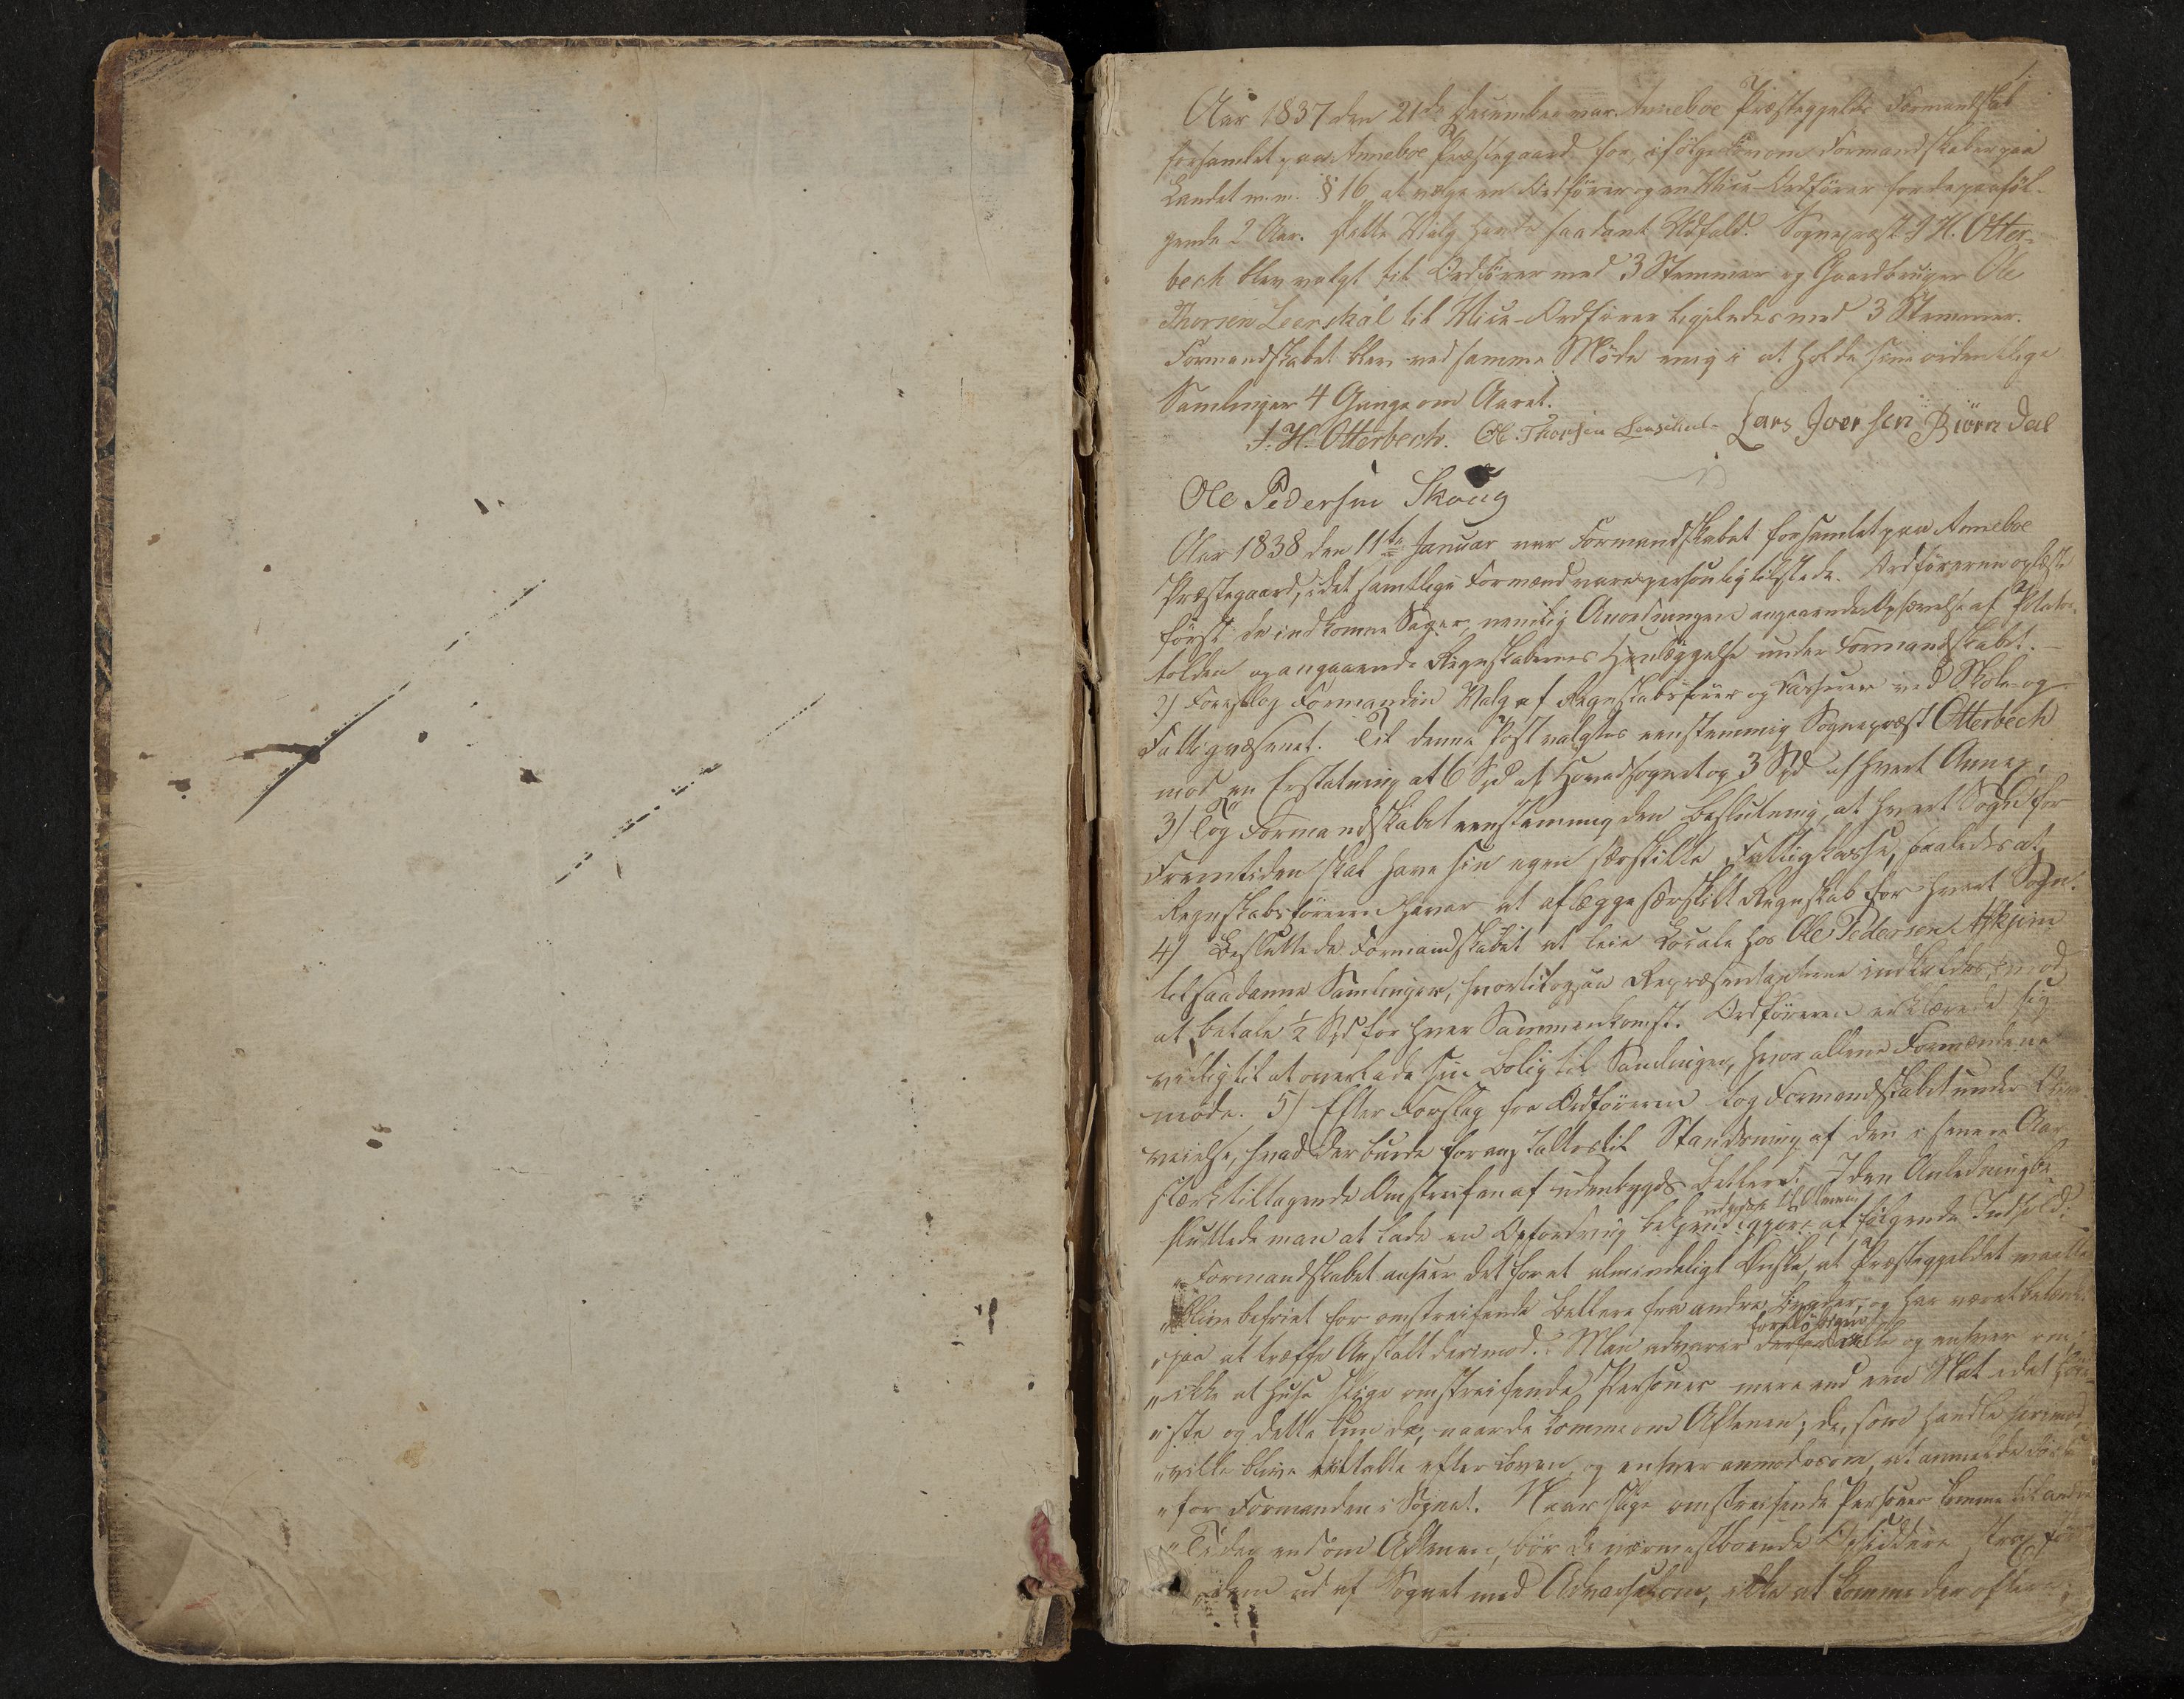 Aar 1837 den 21de December var Anneboe Præstegjelds Formandskab
forsamlet paa Anneboe Præstegaard for, ifølge Lov om Formandskaber paa
Landet m. m. § 16 at vælge en Ordfører og en Vice-Ordfører for de paaføl-
gende 2 Aar. Dette Valg havde saadant Udfald: Sognepræst J H. Otter-
bech blev valgt til Ordfører med 3 Stemmer og Gaardbruger Ole
Thorsen Leerskal til Vice-Ordfører ligeledes med 3 Stemmer.
Formandskabet blev ved samme Møde enig i at holde sine ordentlige
Samlinger 4 Gange om Aaret.
J. H. Otterbech. Ole Thorsen Leerskal. Lars Joersen Biørndal
Ole Pedersen Skoug
Aar 1838 den 11te Januar var Formandskabet forsamlet paa Anneboe
Præstegaard, idet samtlige Formænd vare personlig tilstede. Ordføreren oplæste
først de indkomne Sager, nemlig Anordningen angaaende Ophævelse af
tolden og angaaende Regnskabernes Henlæggelse under Formandskabet.
2) Foreslog Formanden Valg af Regnskabsfører og Kasserer ved Skole- og
Fattigvæsenet. Til denne Post valgtes eenstemmig Sognepræst Otterbech
mod en Erstatning af 6 Spd af Hovedsognet og 3 Spd af hvert Annex.
3) Tog Formandskabet eenstemmig den Beslutning, at hvert Sogn for
Fremtiden skal have sin egen særskilte Fattigkasse, saaledes at
Regnskabsføreren haver at aflægge særskilt Regnskab for hvert Sogn.
4) Besluttede Formandskabet at leie Locale hos Ole Pedersen Askjem
til saadanne Samlinger, hvortil ogsaa Repræsentanterne indkaldes, mod
at betale ½ Spd for hver Sammenkomst. Ordføreren erklærede sig
villig til at overlade sin Bolig til Samlinger, hvor allene Formændene
møde. 5) Efter Forslag fra Ordføreren tog Formandskabet under Over-
veielse, hvad der burde foranstaltes til Standsning af den i senere Aar
stærkt tiltagende Omstreifen af udenbygds Betlere. I den Anledning be-
sluttede man at lade en Opfordring bekjendtgjøre af følgende Indhold:
"Formandskabet anseer det for et almindeligt Ønske, at Præstegjeldet maatte
"blive befriet for omstreifende Betlere fra andre Bygder, og har været betænkt
"paa at træffe Anstalt derimod. Man advarer og enhver om,
"ikke at huse slige omstreifende Personer mere end een Nat i det Høi-
"este og dette kun da, naar de komme om Aftenen; de, som handle herimod,
"ville blive tiltalte efter Loven, og enhver anmodes om, at anmelde
"for Formanden i Sognet. Naar slige omstreifende Personer komme til andre
"Tider end om Aftenen, bør de nærmestboende Opsiddere strax føre
"dem ud af Sognet med Advarsel om, ikke at komme der oftere;